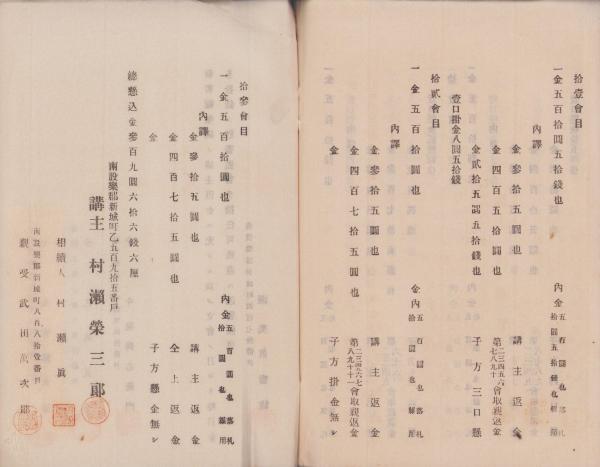 拾壹會目
一金五百拾圓五拾錢也
內金五百圓也落札
拾圓五拾錢也雜用
內譯
金參拾五圓也 講主返金
金四百五拾圓也
二三四五六
第
七八九十
會取親返金
金貳拾五圓五拾錢也 子方三口懸
壹口掛金八圓五拾錢
拾貳會目
一金五百拾圓也
金內五百圓也落札
拾圓也雜用
內譯
金參拾五圓也 講主返金
金四百七拾五圓也
第
八九十十一
會取親返金
金 子方掛金無シ
拾參會目
一金五百拾圓也
內金五百圓也落札
拾圓也雜用
內譯
金參拾五圓也 講主返金
金四百七拾五圓也 仝上返金
金 子方懸金無シ
總懸込金參百九圓六拾六錢六厘
南設樂郡新城町乙五百九拾五番戶
講主 村瀨榮三郎
相續人 村瀨眞
南設樂郡新城町八百八拾壹番戶
親受武田萬次郎